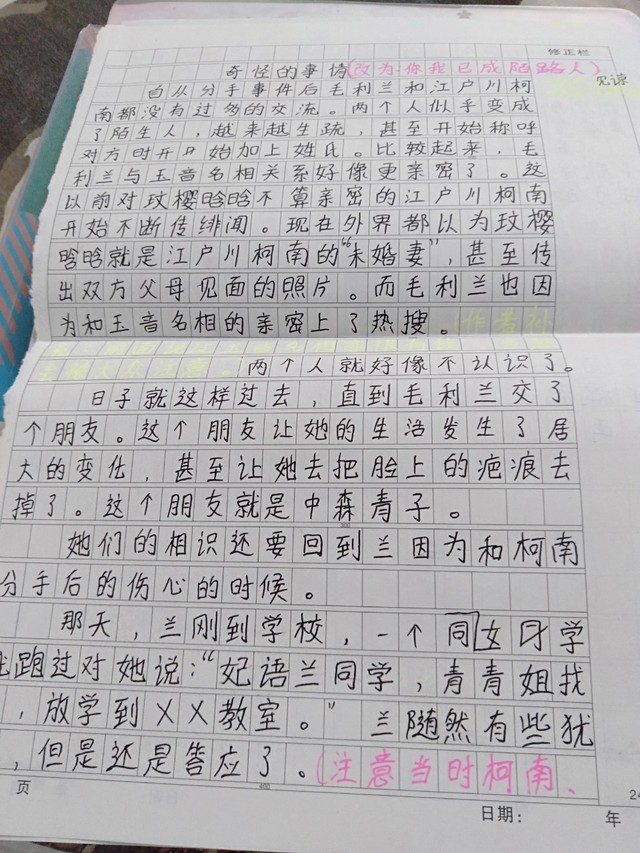 修正栏
奇怪的事情(改为你我已成陌路人)
见谅
自从分手事件后毛利兰和江户川柯
南都没有过多的交流。两个人似乎变成
了陌生人，越来越生疏，甚至开始称呼
对方时开始加上姓氏。比较起来，毛
利兰与玉音名相关系好像更亲密了。这
以前对玟樱晗晗不算亲密的江户川柯南
开始不断传绯闻。现在外界都以为玟樱
晗晗就是江户川柯南的“未婚妻”，甚至传
出双方父母见面的照片。而毛利兰也因
为和玉音名相的亲密上了热搜。(作者社
两个人就好像不认识了。
日子就这样过去，直到毛利兰交了
个朋友。这个朋友让她的生活发生了居
大的变化，甚至让她去把脸上的疤痕去
掉了。这个朋友就是中森青子。
300
她们的相识还要回到兰因为和柯南
分手后的伤心的时候。
那天，兰刚到学校，一个同女同学
跑过对她说：“妃语兰同学，青青姐找
，放学到XX教室。”兰随然有些犹
，但是还是答应了。(注意当时柯南、
400
页
24
日期：
年